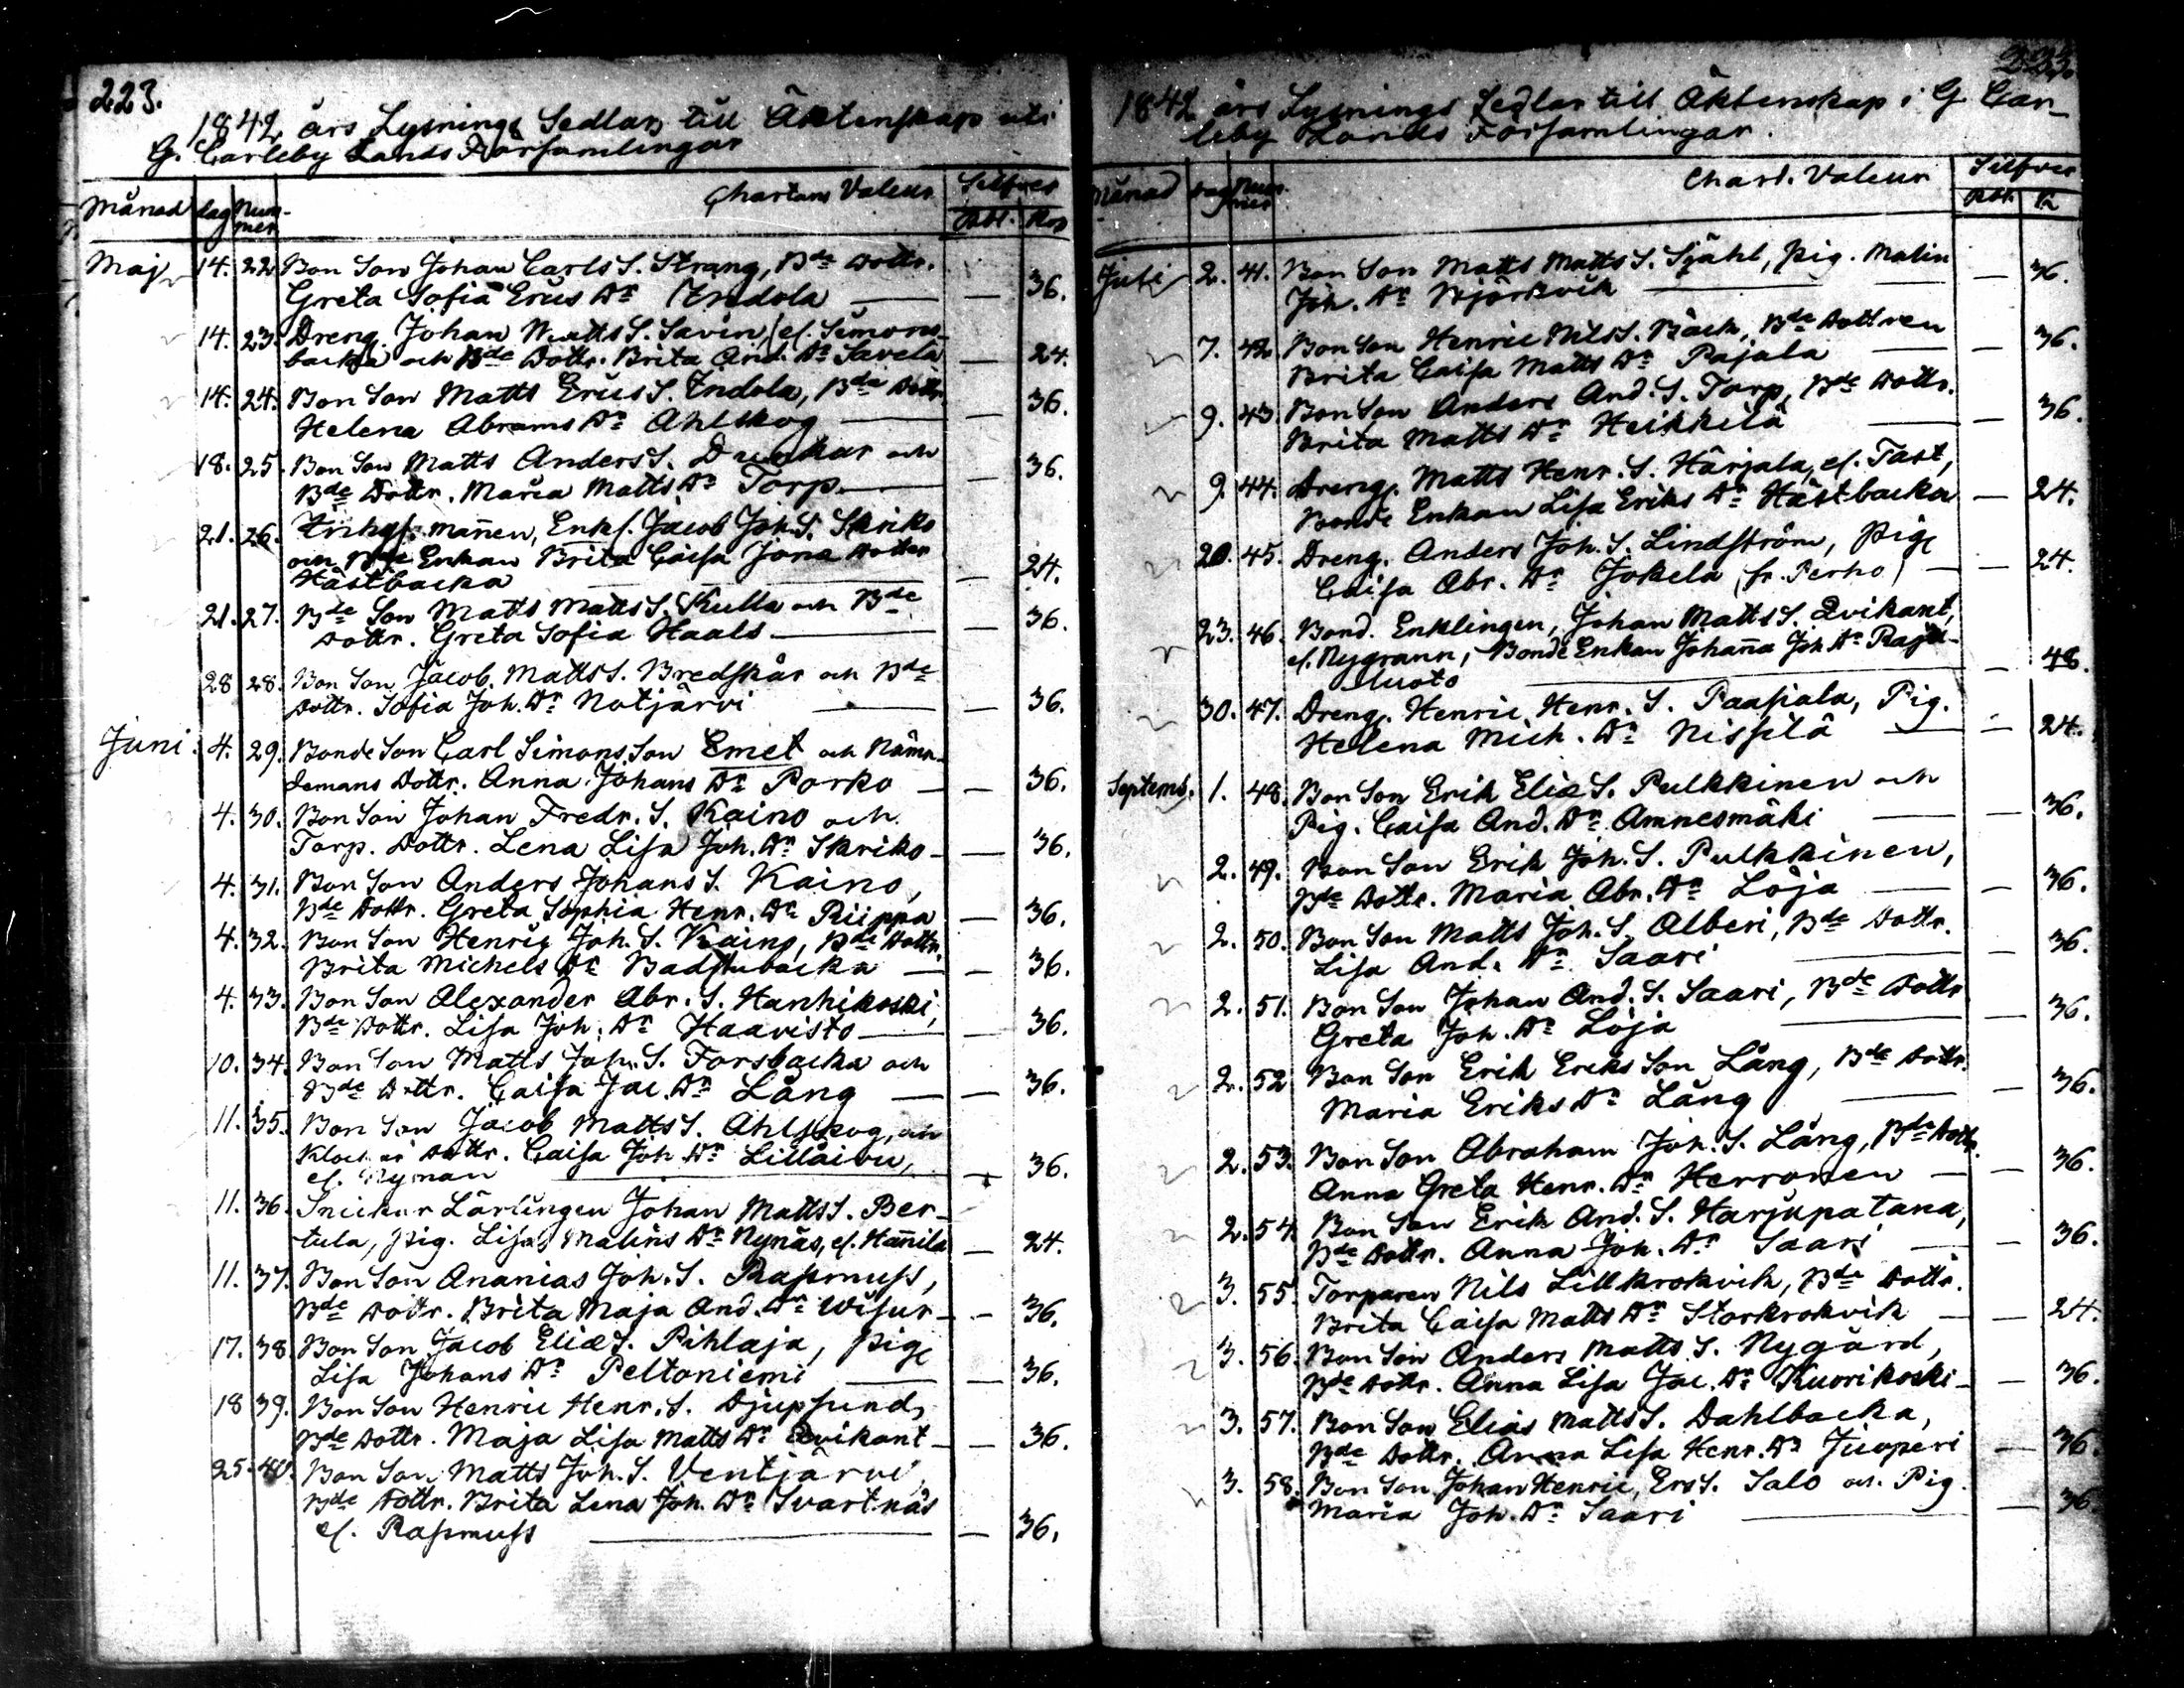 223.
1842 års Lysnings Sedlar till Äktenskap uti
G. Carleby Lands Församlingar
Månad dag Num- Chartans Valeur Silfver
mer Rbl. Kop
Maj 14. 22. Bon Son Johan Carls S. Strang, Bde Dottr.
Greta Sofia Erics Dr Indola — 36.
14. 23. Dreng. Johan Matts S. Savin, el. Simons-
backa och Bde Dottr. Brita And. Dr Savela — 24.
14. 24. Bon Son Matts Erics S. Indola, Bde Dottr.
Helena Abrams Dr Ahlskog — 36.
18. 25. Bon Son Matts Anders S. Dunkar och
Bde Dottr. Maria Matts Dr Torp — 36.
21. 26. mannen, Enkl. Jacob Joh. S. Skriko
och Bde Enkan Brita Caisa Jona Dotter
Hästbacka — 24.
21. 27. Bde Son Matts Matts S. Kulla och Bde
Dottr. Greta Sofia Haals — 36.
28 28. Bon Son Jacob Matts S. Bredskär och Bde
Dottr. Sofia Joh. Dr Notjärvi — 36.
Juni. 4. 29. Bonde Son Carl Simons Son Emet och Nämn-
demans Dottr. Anna Johans Dr Porko — 36.
4. 30. Bon Son Johan Fredr. S. Kaino och
Torp. Dottr. Lena Lisa Joh. Dr Skriko — 36.
4. 31. Bon Son Anders Johans S. Kaino,
Bde Dottr. Greta Sophia Henr. Dr Riippa — 36.
4. 32. Bon Son Henric Joh. S. Kaino, Bde Dottr.
Brita Michels Dr Badstubacka — 36.
4. 33. Bon Son Alexander Abr. S. Hanhikoski,
Bde Dottr. Lisa Joh. Dr Haavisto — 36.
10. 34. Bon Son Matts Joh. S. Forsbacka och
Bde Dottr. Caisa Jac. Dr Lång — 36.
11. 35. Bon Son Jacob Matts S. Ahlskog, och
Dottr. Caisa Joh Dr Lillåivu,
el. Nyman — 36.
11. 36. Snickar Lärlingen Johan Matts S. Ber-
tula, Pig. Lisa Malins Dr Nynäs, el. Hannila — 24.
11. 37. Bon Son Ananias Joh. S. Rasmuss,
Bde Dottr. Brita Maja And. Dr Wisur — 36.
17. 38. Bon Son Jacob Eliæ S. Pihlaja, Pig.
Lisa Johans Dr Peltoniemi — 36.
18 39. Bon Son Henric Henr. S. Djupsund,
Bde Dottr. Maja Lisa Matts Dr Qvikant — 36.
25. 40. Bon Son Matts Joh. S. Ventjärvi,
Bde Dottr. Brita Lena Joh. Dr Svartnäs
el. Rasmuss — 36.
1842 års Lysnings Sedlar till Äktenskap i G. Car-
leby Lands Församlingar.
Månad Dag Num- Chart. Valeur Silfver
mer Rbl. K
Juli 2. 41. Bon Son Matts Matts S. Sjåhl, Pig. Malin
Joh. Dr Björkvik — 36.
7. 42. Bon Son Henric Nils S. Bäck, Bde Dottren
Brita Caisa Matts Dr Pajala — 36.
9. 43. Bon Son Anders And. S. Torp, Bde Dottr.
Brita Matts Dr Heikkilä — 36.
9. 44. Dreng. Matts Henr. S. Härjala, el. Tast,
Bonde Enkan Lisa Eriks Dr Hästbacka — 24.
20. 45. Dreng. Anders Joh. S. Lindström, Pig.
Caisa Abr. Dr Jokela (fr. Perho) — 24.
23. 46. Bond. Enklingen, Johan Matts S. Qvikant,
el. Nygrann, Bonde Enkan Johanna Joh. Dr Raja-
luoto — 48.
30. 47. Dreng. Henric Henr. S. Paasiala, Pig.
Helena Mich. Dr Nissilä — 24.
Septemb. 1. 48. Bon Son Erik Eliæ S. Pulkkinen och
Pig. Caisa And. Dr Amnesmäki — 36.
2. 49. Bon Son Erik Joh. S. Pulkkinen,
Bde Dottr. Maria Abr. Dr Löja — 36.
2. 50. Bon Son Matts Joh. S. Alberi, Bde Dottr.
Lisa And. Dr Saari — 36.
2. 51. Bon Son Johan And. S. Saari, Bde Dottr.
Greta Joh. Dr Löja — 36.
2. 52 Bon Son Erik Eriks Son Lång, Bde Dottr.
Maria Eriks Dr Lång — 36.
2. 53. Bon Son Abraham Joh. S. Lång, Bde Dottr.
Anna Greta Henr. Dr Herronen — 36.
2. 54. Bon Son Erik And. S. Harjupatana,
Bde Dottr. Anna Joh. Dr Saari — 36.
3. 55. Torparen Nils Lillkrokvik, Bde Dottr.
Brita Caisa Matts Dr Storkrokvik — 24.
3. 56. Bon Son Anders Matts S. Nygård,
Bde Dottr. Anna Lisa Jac. Dr Kuorikoski — 36.
3. 57. Bon Son Elias Matts S. Dahlbacka,
Bde Dottr. Anna Lisa Henr. Dr Juoperi — 36.
3. 58. Bon Son Johan Henric, Ers S. Salo och Pig.
Maria Joh. Dr Saari — 36